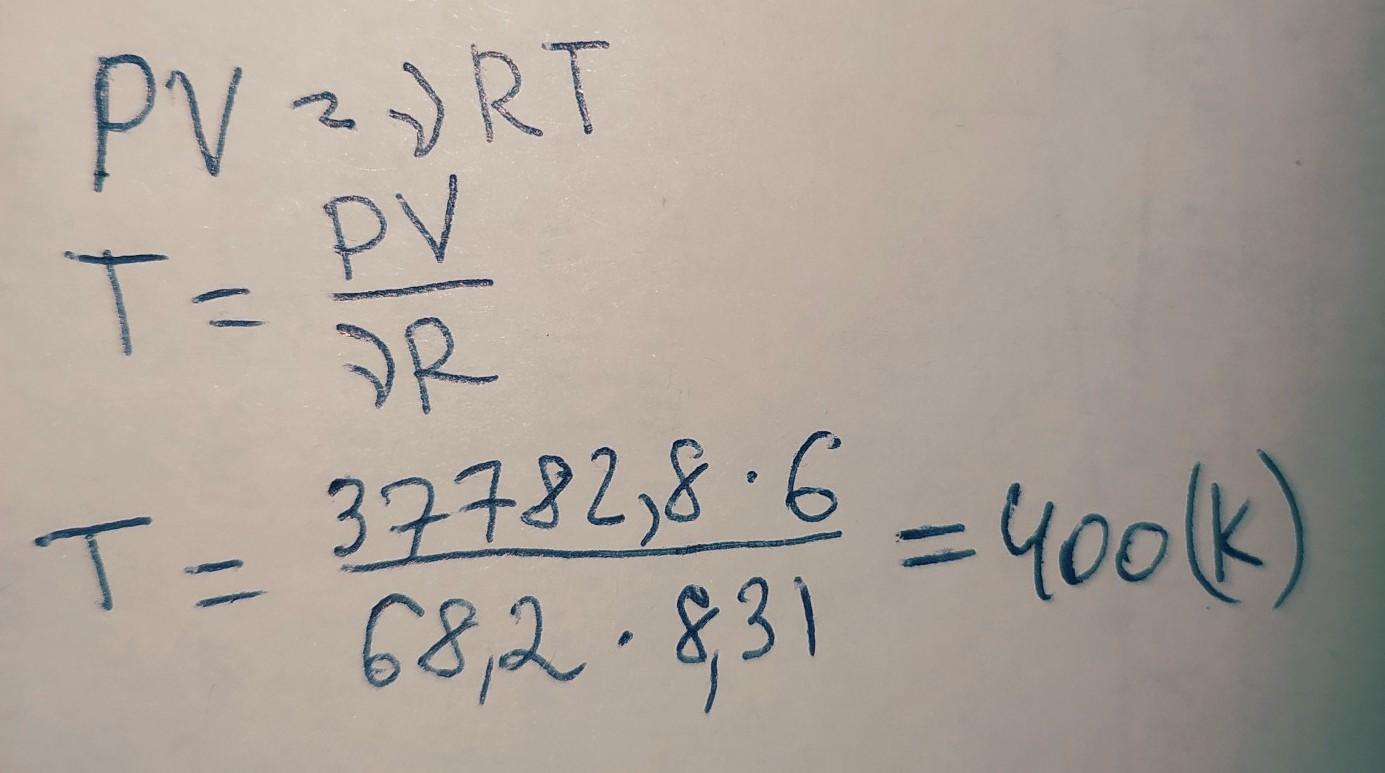 PV = νRT
T = PV / νR
T = 37782,8 · 6 / 68,2 · 8,31 = 400 (K)